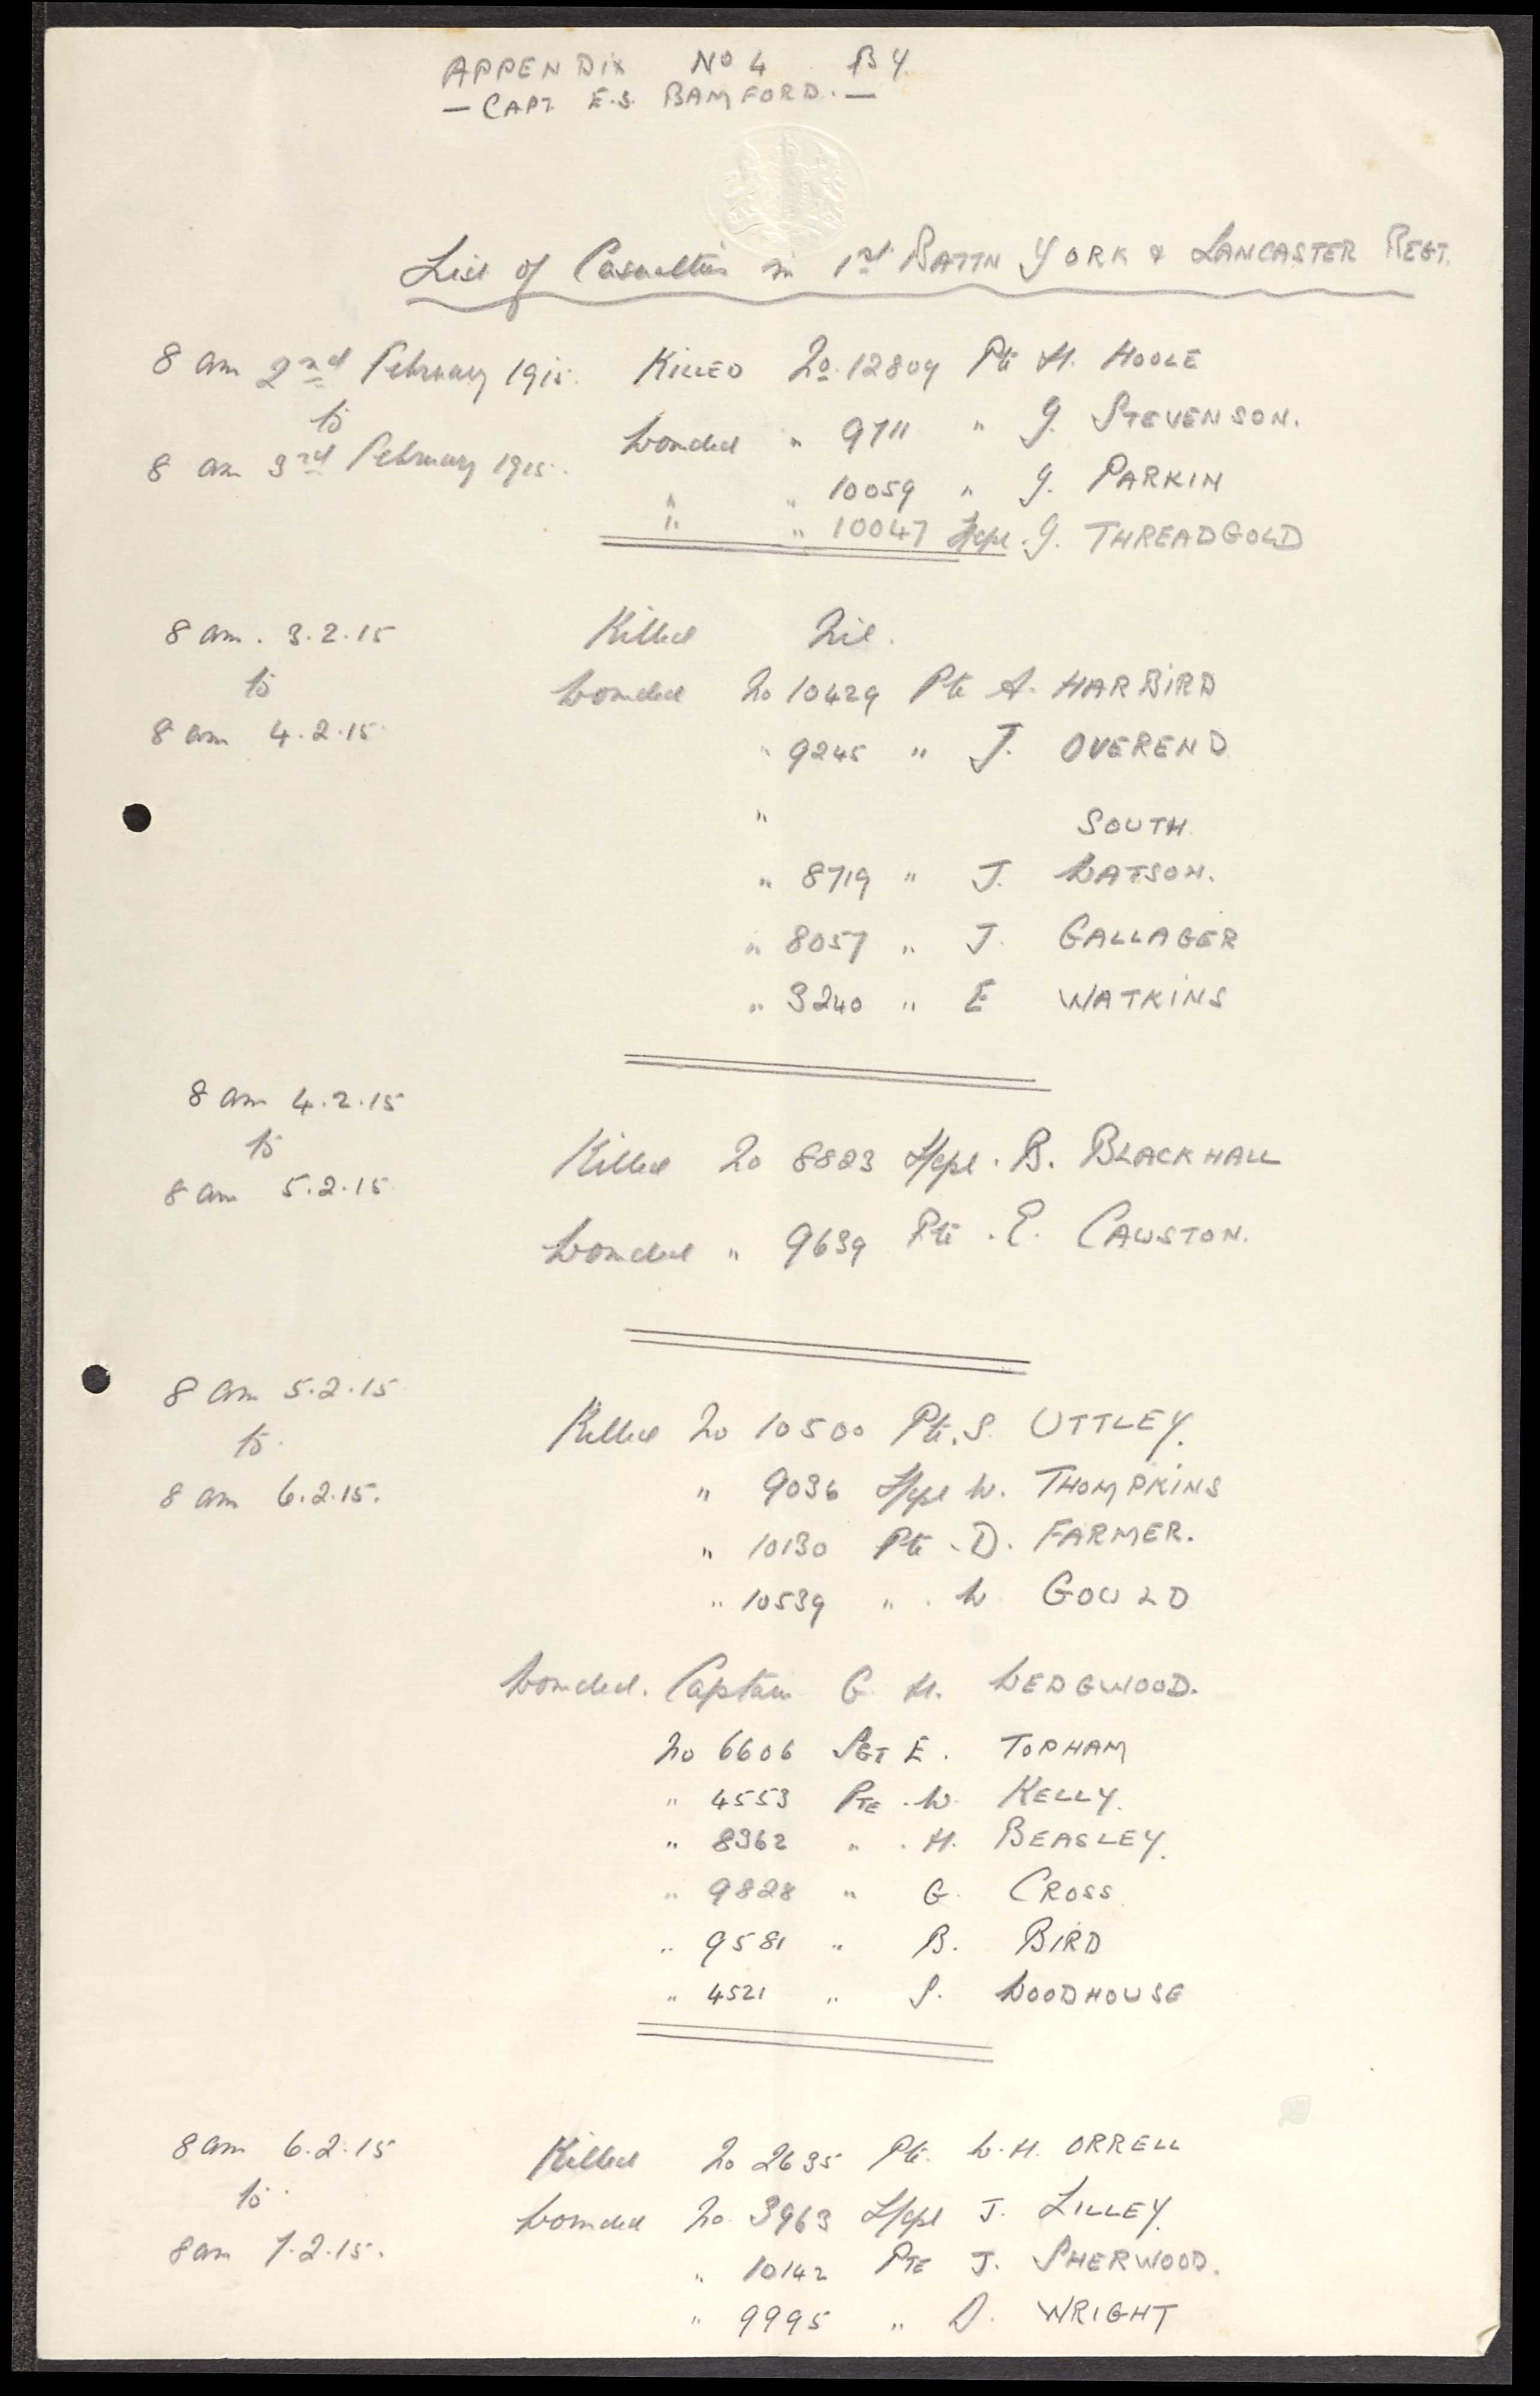 APPENDIX No 4 BY
— CAPT E.S. BAMFORD. —
List of Casualties in 1st BATTN YORK & LANCASTER REGT.
8 am 2nd February 1915. KILLED No. 12809 Pte H. HOOLE
to
Wounded " 9711 " G. STEVENSON.
8 am 3rd February 1915.
" " 10059 " G. PARKIN
" " 10047 L/Cpl. G. THREADGOLD
8 am. 3.2.15 Killed Nil.
to Wounded No 10429 Pte A. HARBIRD
8 am 4.2.15 " 9245 " J. OVEREND
" SOUTH
" 8719 " J. WATSON.
" 8057 " J. GALLAGER
" 3240 " E WATKINS
8 am 4.2.15
to Killed No 8823 L/Cpl. B. BLACKHALL
8 am 5.2.15
Wounded " 9639 Pte. E. CAWSTON.
8 am 5.2.15
to Killed No 10500 Pte. S. UTTLEY.
8 am 6.2.15. " 9036 L/Cpl W. THOMPKINS
" 10130 Pte. D. FARMER.
" 10539 " . W GOULD
Wounded. Captain G H. WEDGWOOD.
No 6606 SGT E. TOPHAM
" 4553 PTE. W. KELLY.
" 8362 " . H. BEASLEY.
" 9828 " G. CROSS
" 9581 " B. BIRD
" 4521 " S. WOODHOUSE
8 am 6.2.15 Killed No 2635 Pte. W.H. ORRELL
to Wounded No 3963 L/Cpl J. LILLEY.
8 am 7.2.15. " 10142 PTE J. SHERWOOD.
" 9995 " D. WRIGHT